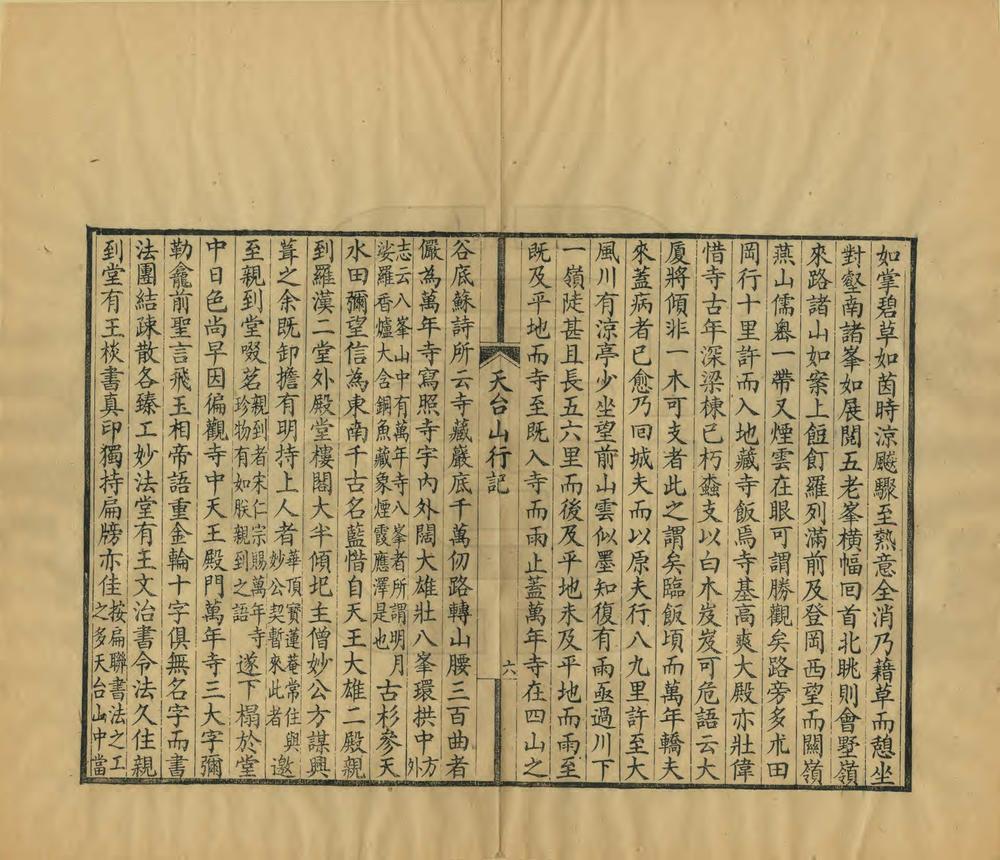 如掌碧草如茵時涼颸驟至熱意全消乃藉草而憩坐
對壑南諸峯如展閱五老峯橫幅回首北眺則會墅嶺
來路諸山如案上飣餖羅列滿前及登岡西望而關嶺
燕山儒嶴一帶又煙雲在眼可謂勝觀矣路旁多朮田
岡行十里許而入地藏寺飯焉寺基高爽大殿亦壯偉
惜寺古年深梁棟已朽蠹支以白木岌岌可危語云大
厦將傾非一木可支者此之謂矣臨飯頃而萬年轎夫
來蓋病者已愈乃回城夫而以原夫行八九里許至大
風川有涼亭少坐望前山雲似墨知復有雨亟過川下
一嶺陡甚且長五六里而後及平地未及平地而雨至
既及平地而寺至既入寺而雨止蓋萬年寺在四山之
天台山行記
六
谷底蘇詩所云寺藏巖底千萬仞路轉山腰三百曲者
儼為萬年寺寫照寺宇內外閎大雄壯八峯環拱中方外
志云八峯山中有萬年寺八峯者所謂明月
娑羅香爐大含銅魚藏象煙霞應澤是也
古杉參天
水田彌望信為東南千古名藍惜自天王大雄二殿親
到羅漢二堂外殿堂樓閣大半傾圮主僧妙公方謀興
葺之余既卸擔有明持上人者華頂寶蓮菴常住與
妙公契暫來此者
邀
至親到堂啜茗親到者宋仁宗賜萬年寺
珍物有如朕親到之語
遂下榻於堂
中日色尚早因徧觀寺中天王殿門萬年寺三大字彌
勒龕前聖言飛玉相帝語重金輪十字俱無名字而書
法團結疎散各臻工妙法堂有王文治書令法久住親
到堂有王棪書真印獨持扁牓亦佳按扁聯書法之工
之多天台山中當